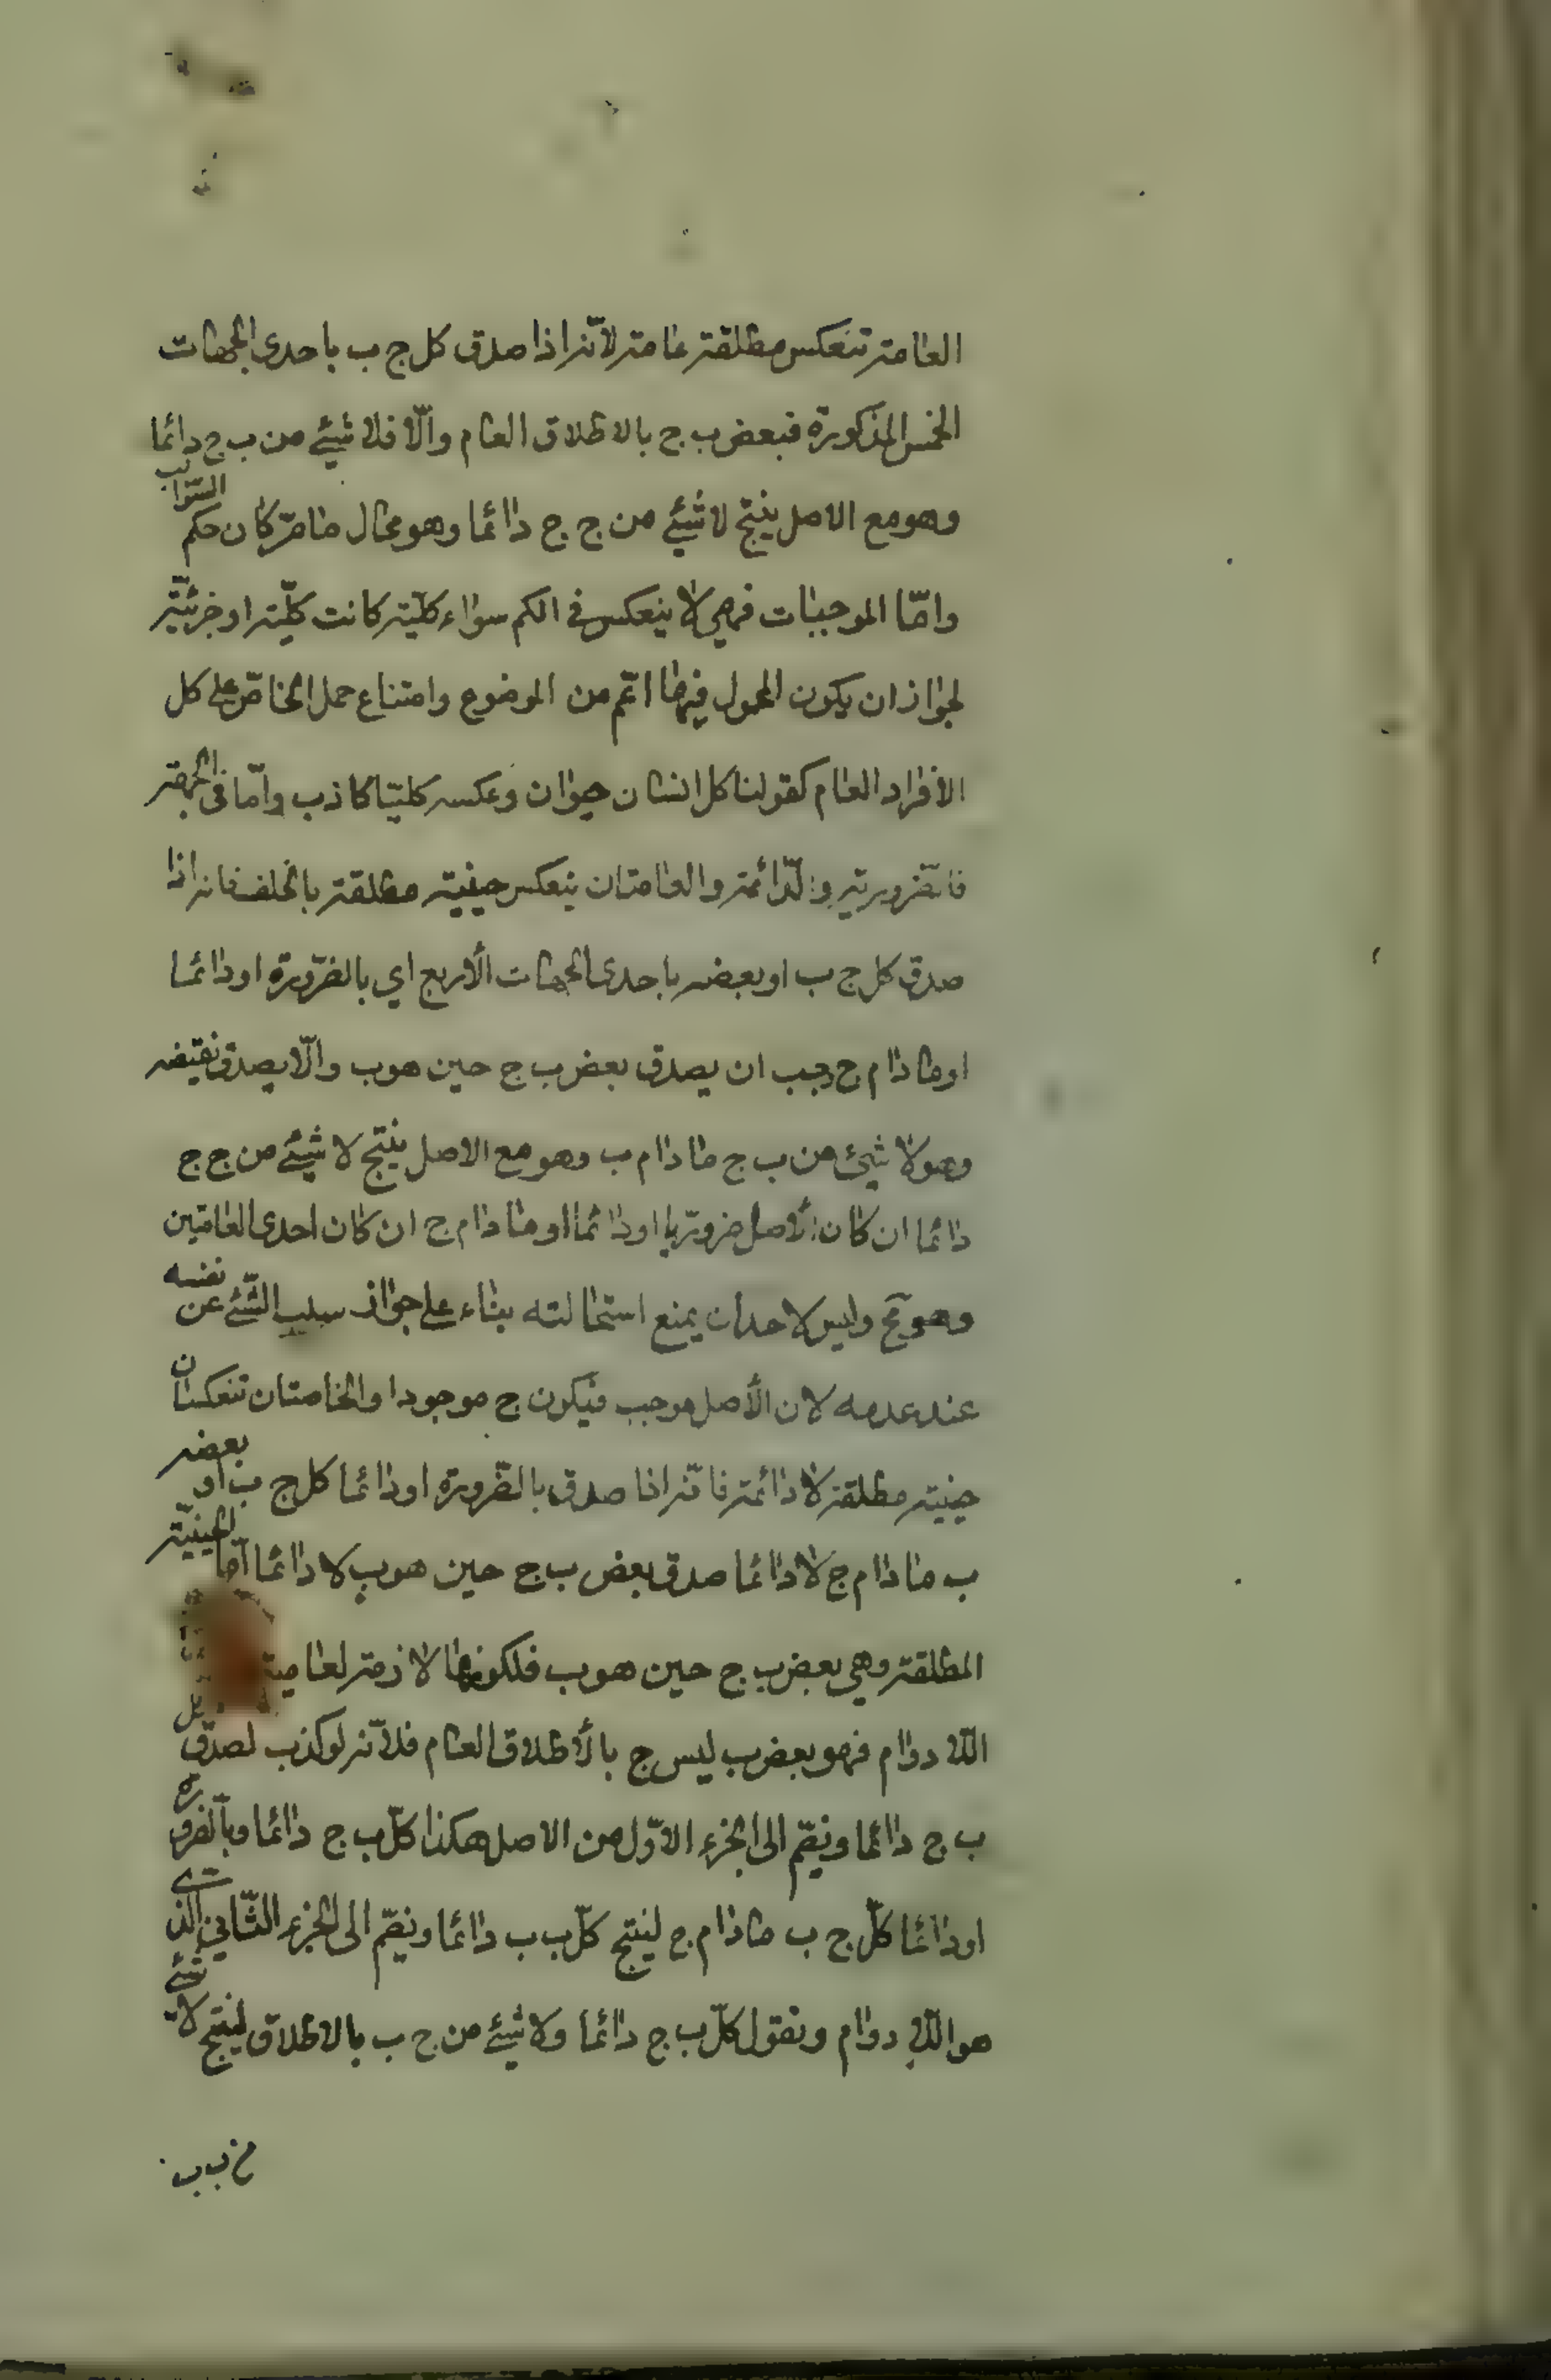 العامة تنعكس مطلقة عامة لأنه اذا صدق كل ج ب باحدى الجهات
الخمس المذكورة فبعض ب ج بالاطلاق العام والّا فلا شيئ من ب ج دائما
وهو مع الاصل ينتج لا شيئ من ج ج دائما وهو محال مامرّ كان حكم السّوالب
وامّا الموجبات فهي لا ينعكس في الكم سواء كليّة كانت كليّة او جزئيّة
لجواز ان يكون المحمول فيها اعّم من الموضوع وامتناع حمل الخاصّ على كل
الافراد العام كقولنا كل انسان حيوان وعكسه كليّا كاذب وامّا في الجهة
فالضّروريّة والدّائمة والعامتان ينعكس حينيّة مطلقة بالخلف فانه اذا
صدق كل ج ب او بعضه باحدى الجهات الأربع اي بالضّرورة او دائما
او ما دام ج وجب ان يصدق بعض ب ج حين هو ب والّا يصدق نقيضه
وهو لا شيئ من ب ج ما دام ب وهو مع الاصل ينتج لا شيئ من ج ج
دائما ان كان الأصل ضروريّا او دائما او ما دام ج ان كان احدى العامّتين
وهو مح وليس لاحد ان يمنع استحالته بناء على جواز سلب الشّئ عن نفسه
عند عدمه لان الأصل موجب فيكون ج موجودا والخاصتان تنعكسان
حينيّة مطلقة لا دائمة فانّه اذا صدق بالضّرورة او دائما كل ج ب او بعضه
ب ما دام ج لا دائما صدق بعض ب ج حين هو ب لا دائما امّا الحينيّة
المطلقة وهي بعض ب ج حين هو ب فلكونها لازمة لعاميه
اللّا دوام فهو بعض ب ليس ج بالأطلاق العام فلانّه لو كذب لصدق كل
ب ج دائما ونضّم الى الجزء الاوّل من الاصل هكذا كلّ ب ج دائما وبالضّرورة
او دائما كلّ ج ب ما دام ج لينتج كلّ ب ب دائما ونضّم الى الجزء الثّاني الذى
هو اللّا دوام ونقول كلّ ب ج دائما ولا شيئ من ج ب بالاطلاق لينتج لا شئ
من ب ب